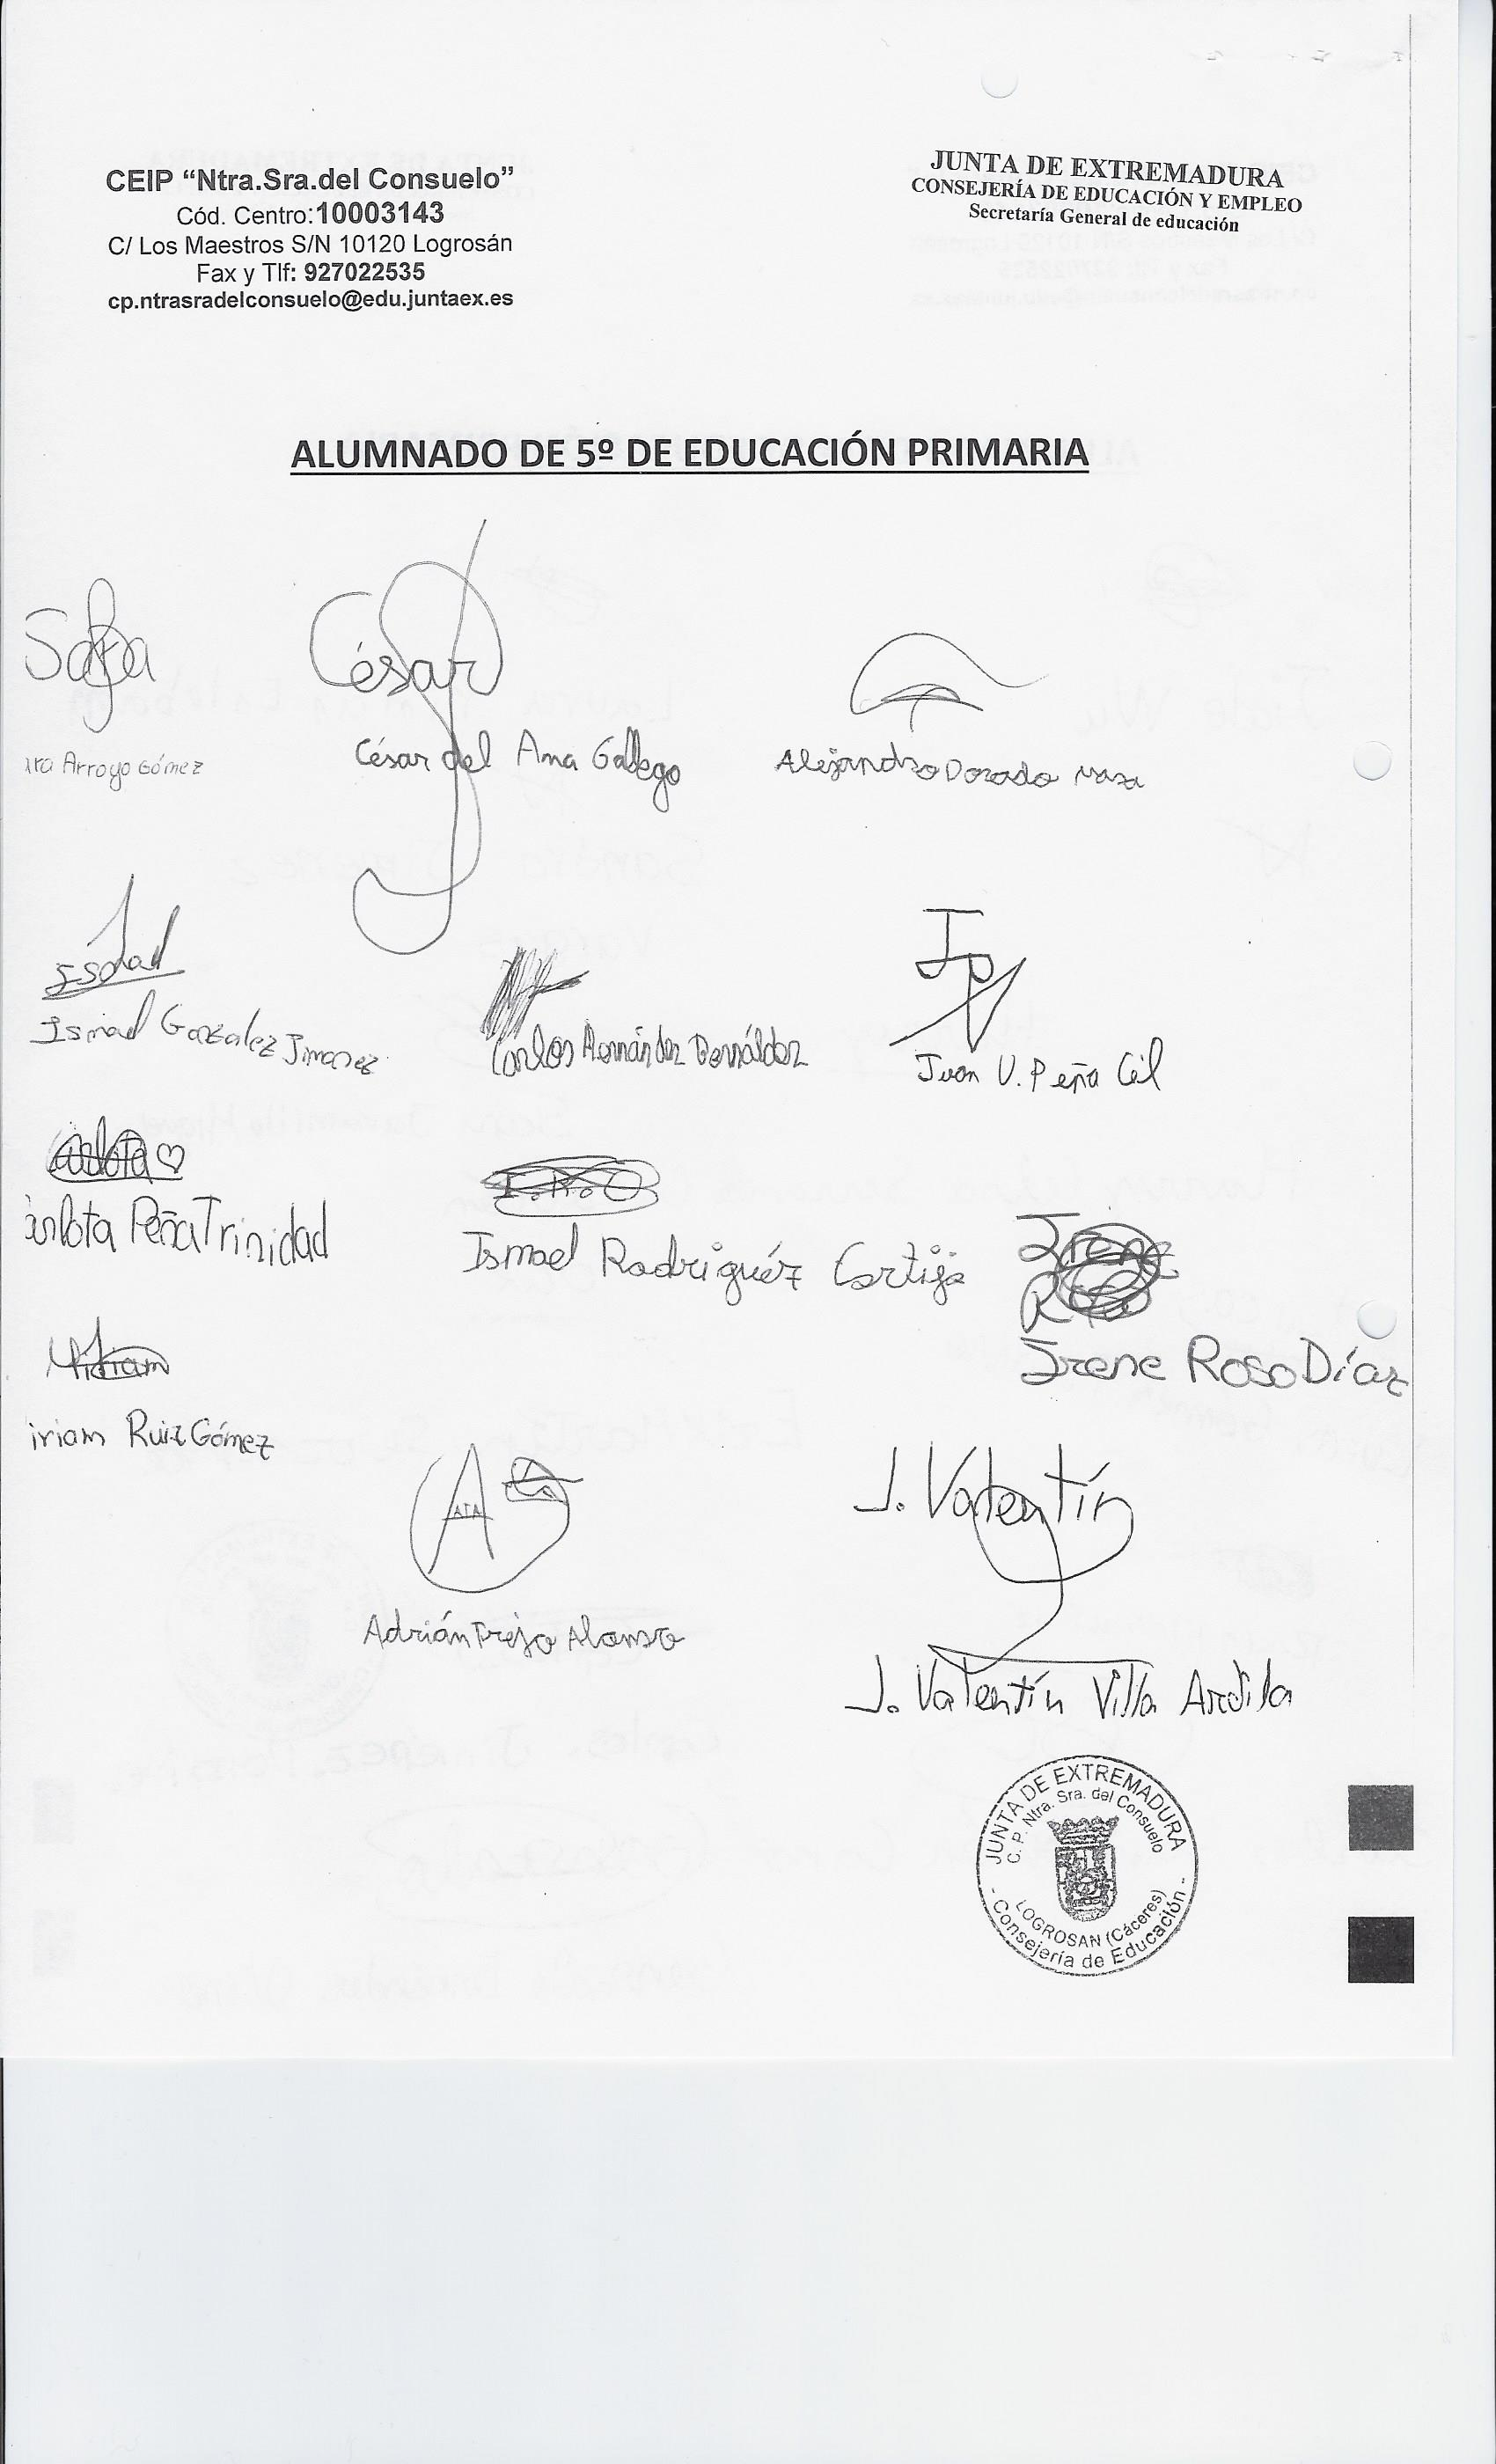 CEIP “Ntra.Sra.del Consuelo”
Cód. Centro:10003143
C/ Los Maestros S/N 10120 Logrosán
Fax y Tlf: 927022535
cp.ntrasradelconsuelo@edu.juntaex.es
JUNTA DE EXTREMADURA
CONSEJERÍA DE EDUCACIÓN Y EMPLEO
Secretaría General de educación
ALUMNADO DE 5º DE EDUCACIÓN PRIMARIA
César
Arroyo Gómez
César del Ama Gallego
Alejandro Dorado
Jp
Ismael Gonzalez Jimenez
Carlos Hernández Bernáldez
Juan V. Peña Cil
Carlota
arlota Peña Trinidad
Ismael Rodriguéz Cortijo
Irene
Irene Roso Díaz
Miriam
iriam Ruiz Gómez
A
ATA
J. Valentín
Adrián Trejo Alonso
J. Valentín Villa Ardila
JUNTA DE EXTREMADURA
C. P. Ntra. Sra. del Consuelo
LOGROSAN (Cáceres)
- Consejería de Educación -